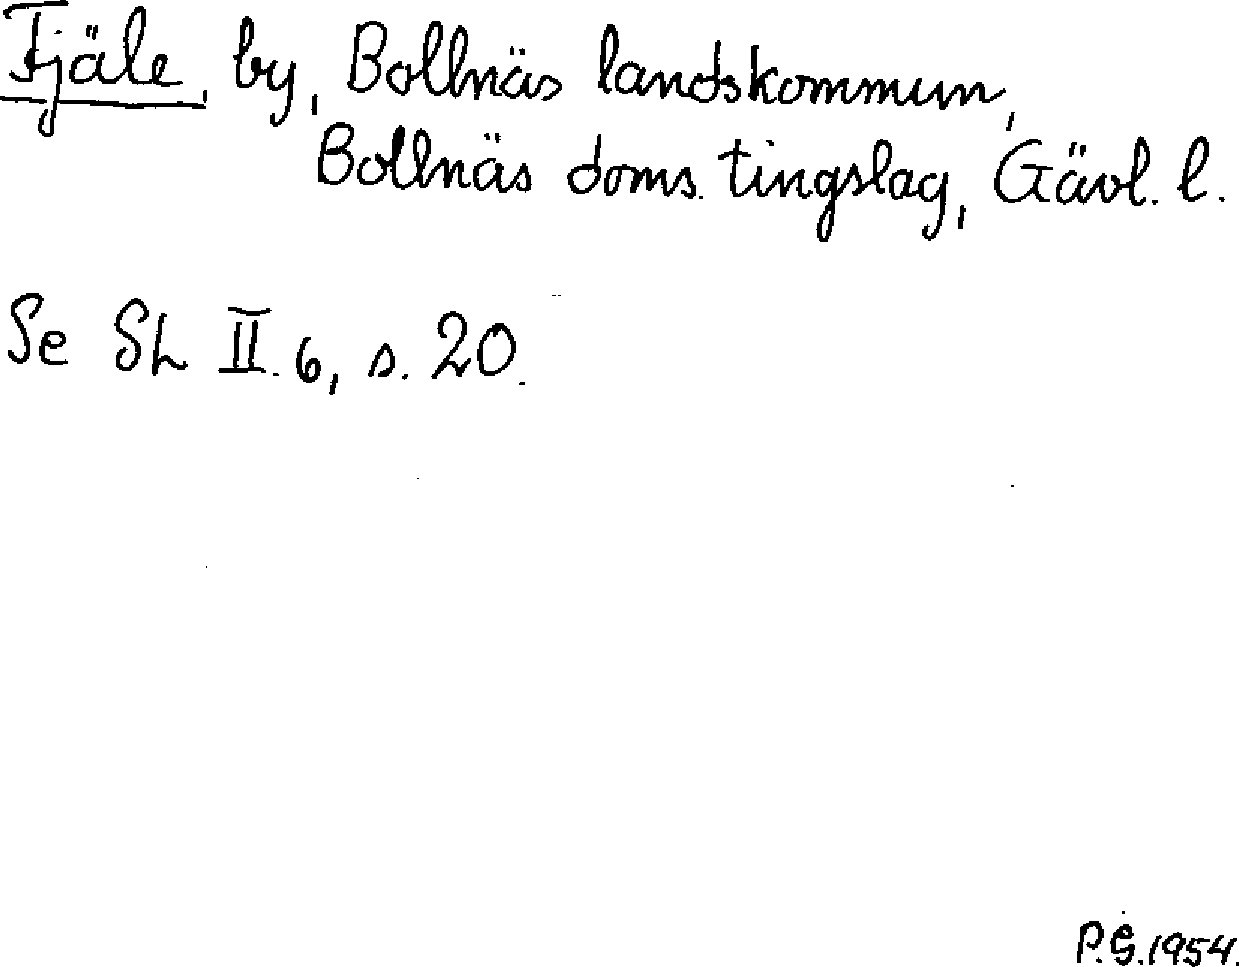 Fjäle, by, Bollnäs landskommun,
Bollnäs doms. tingslag, Gävl. l.
Se Sh II.6, s. 20.
P.G.1954.